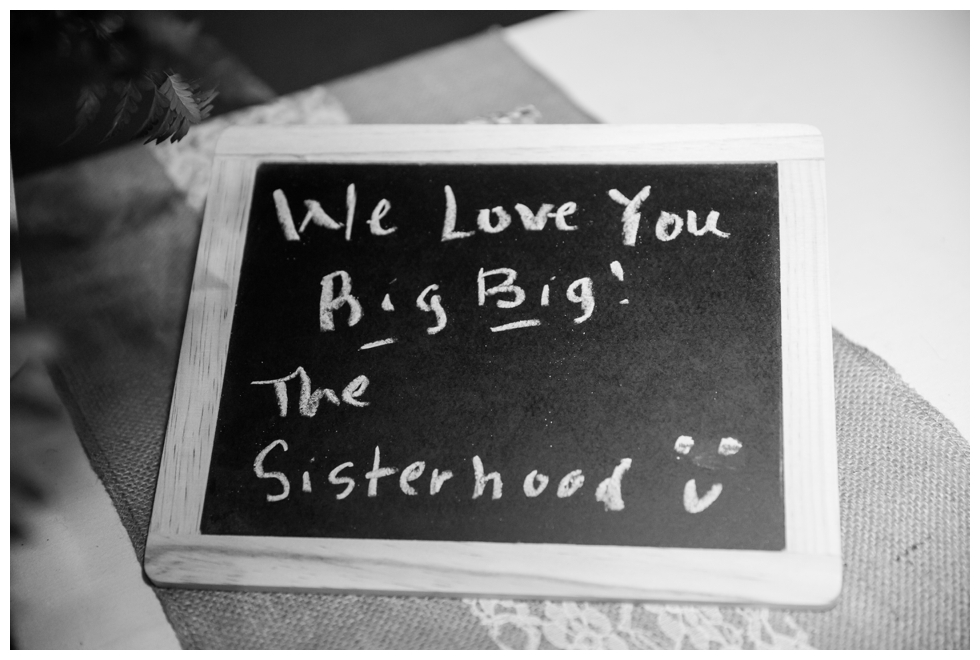 We Love You
Big Big!
The
Sisterhood